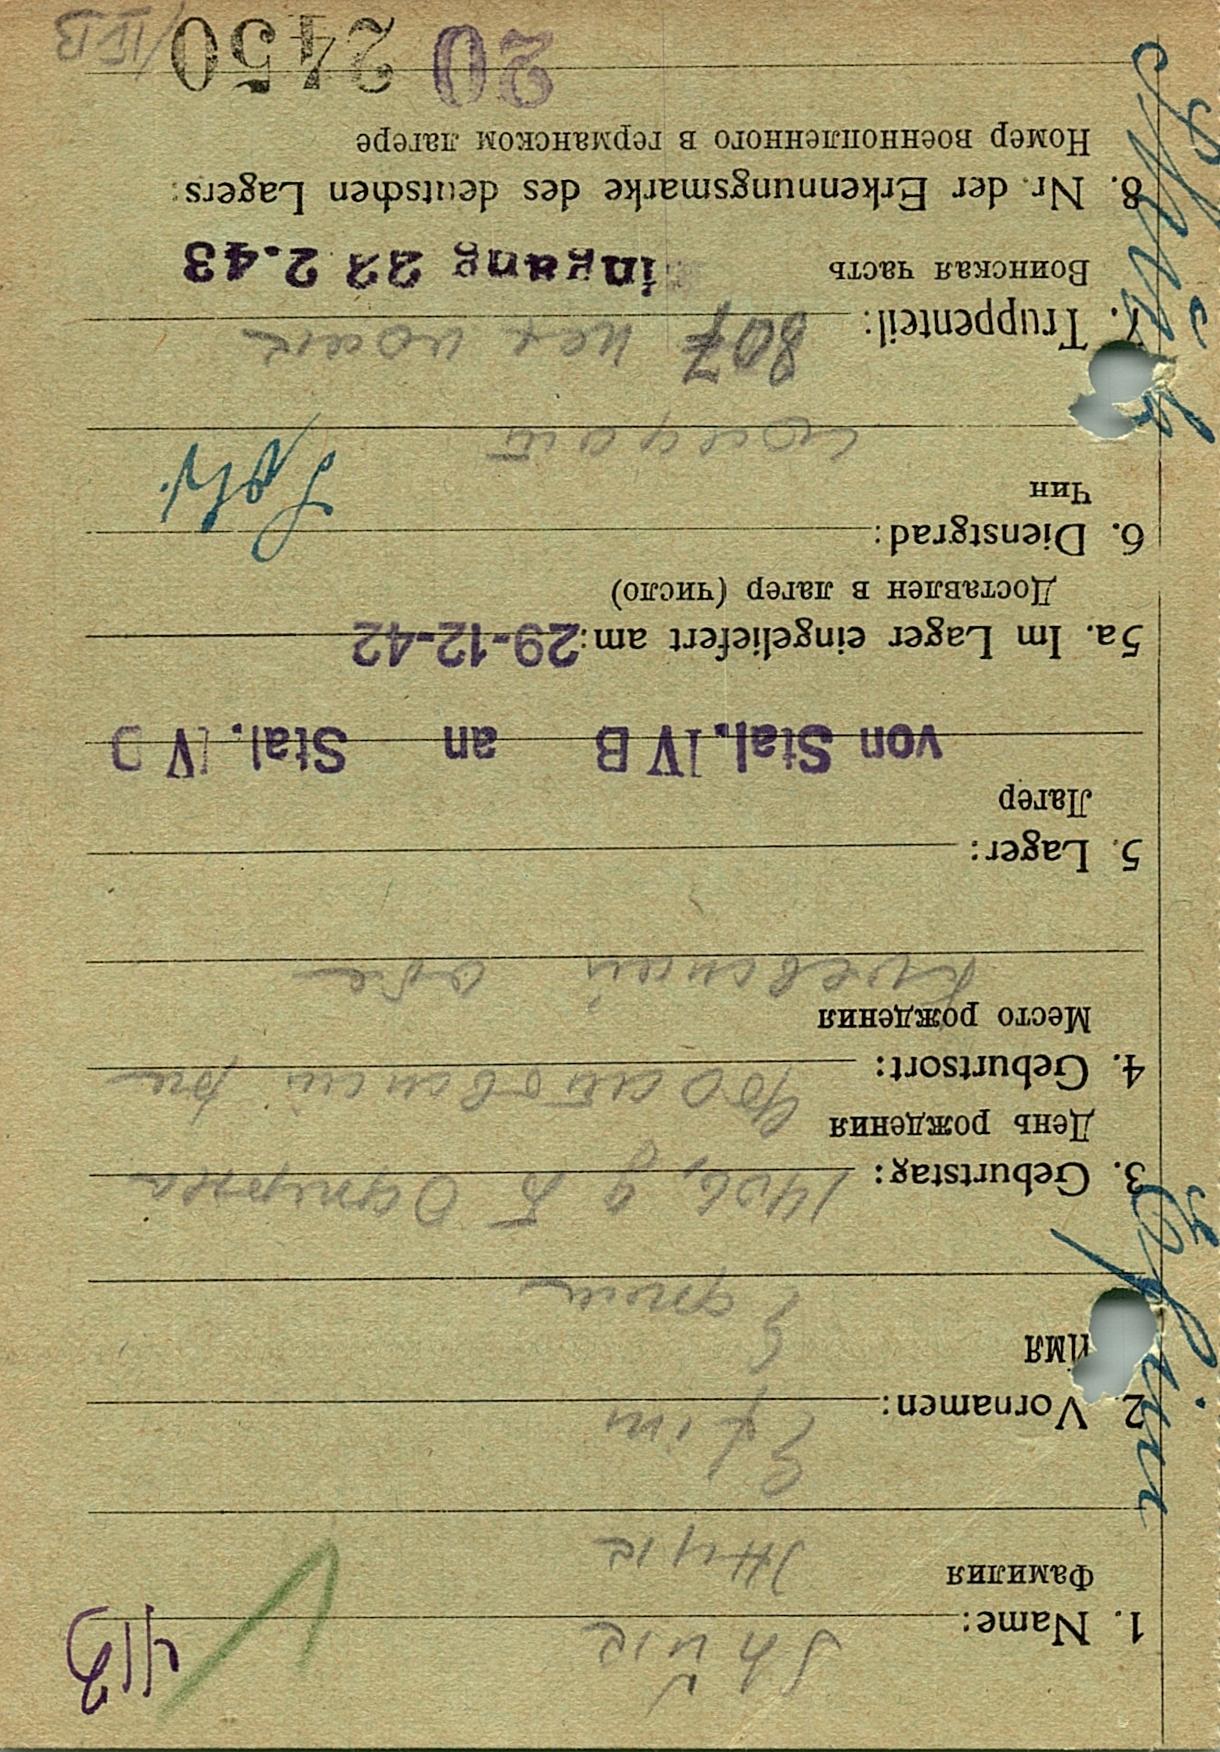 4B
1. Name: Shuk
Фамилия
Жук
2. Vornamen: Efim
Имя
Ефим
3. Geburtstag: 1906, 9
День рождения
4. Geburtsort:
Место рождения
Киевский обл
5. Lager:
Лагер
von Stal. IV B an Stal. IV D
5a. Im Lager eingeliefert am: 29-12-42
Доставлен в лагер (число)
6. Dienstgrad: Sold.
Чин
солдат
7. Truppenteil: 807
Воинская часть
ingang 22 2.43
8. Nr. der Erkennungsmarke des deutschen Lagers:
Номер военнопленного в германском лагере
20 2450 /IVB
Efim